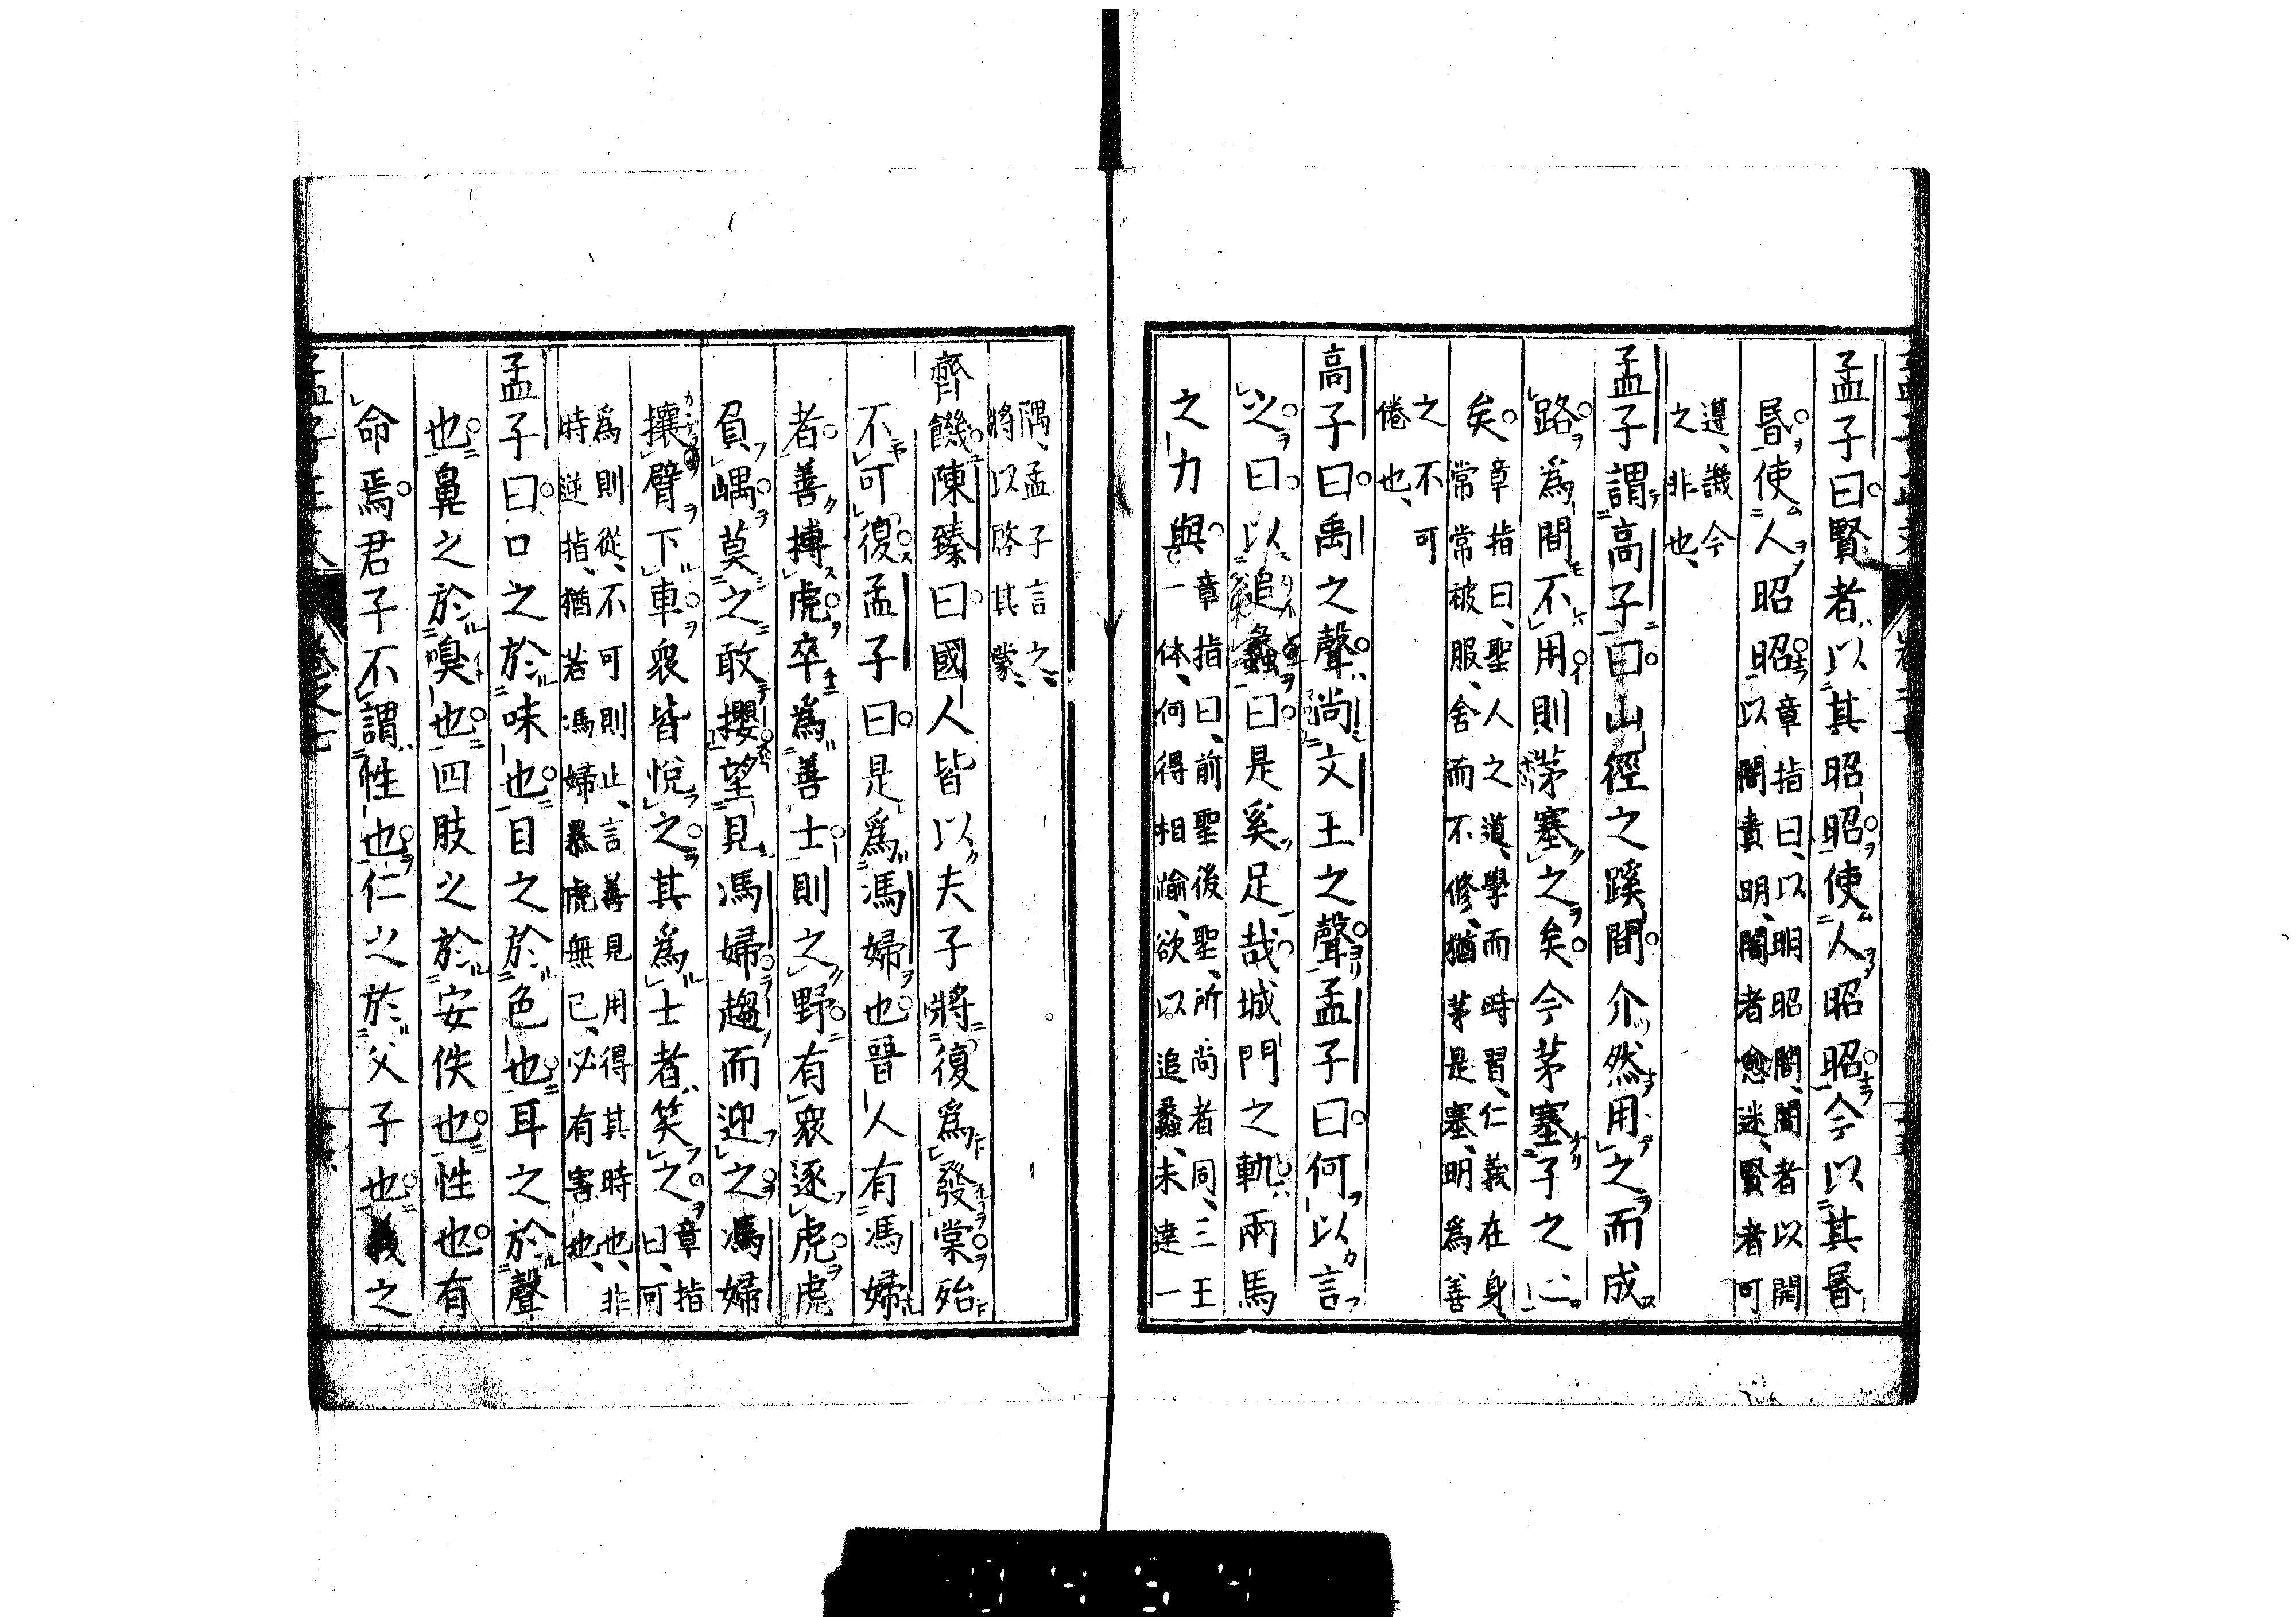 孟子曰賢者以其昭昭使人昭昭今以其昬
昬使人昭昭
章指曰、以明昭闇、闇者以開
以闇責明、闇者愈迷、賢者可
遵、譏今
之非也、
孟子謂高子曰山徑之蹊間介然用之而成
路為間不用則茅塞之矣今茅塞子之心
矣
章指曰、聖人之道、學而時習、仁義在身
常常被服、舍而不修、猶茅是塞、明為善
之不可
倦也、
高子曰禹之聲尚文王之聲孟子曰何以言
之曰以追蠡曰是奚足哉城門之軌兩馬
之力與
章指曰、前聖後聖、所尚者同、三王
一体、何得相喻、欲以追蠡、未達一
隅、孟子言之、
將以啓其蒙、
齊饑陳臻曰國人皆以夫子將復為發棠殆
不可復孟子曰是為馮婦也晉人有馮婦
者善搏虎卒為善士則之野有衆逐虎虎
負嵎莫之敢攖望見馮婦趨而迎之馮婦
攘臂下車衆皆悅之其為士者笑之
章指
曰、可
為則從、不可則止、言善見用得其時也、非
時逆指、猶若馮婦暴虎無已、必有害也、
孟子曰口之於味也目之於色也耳之於聲
也鼻之於嗅也四肢之於安佚也性也有
命焉君子不謂性也仁之於父子也義之